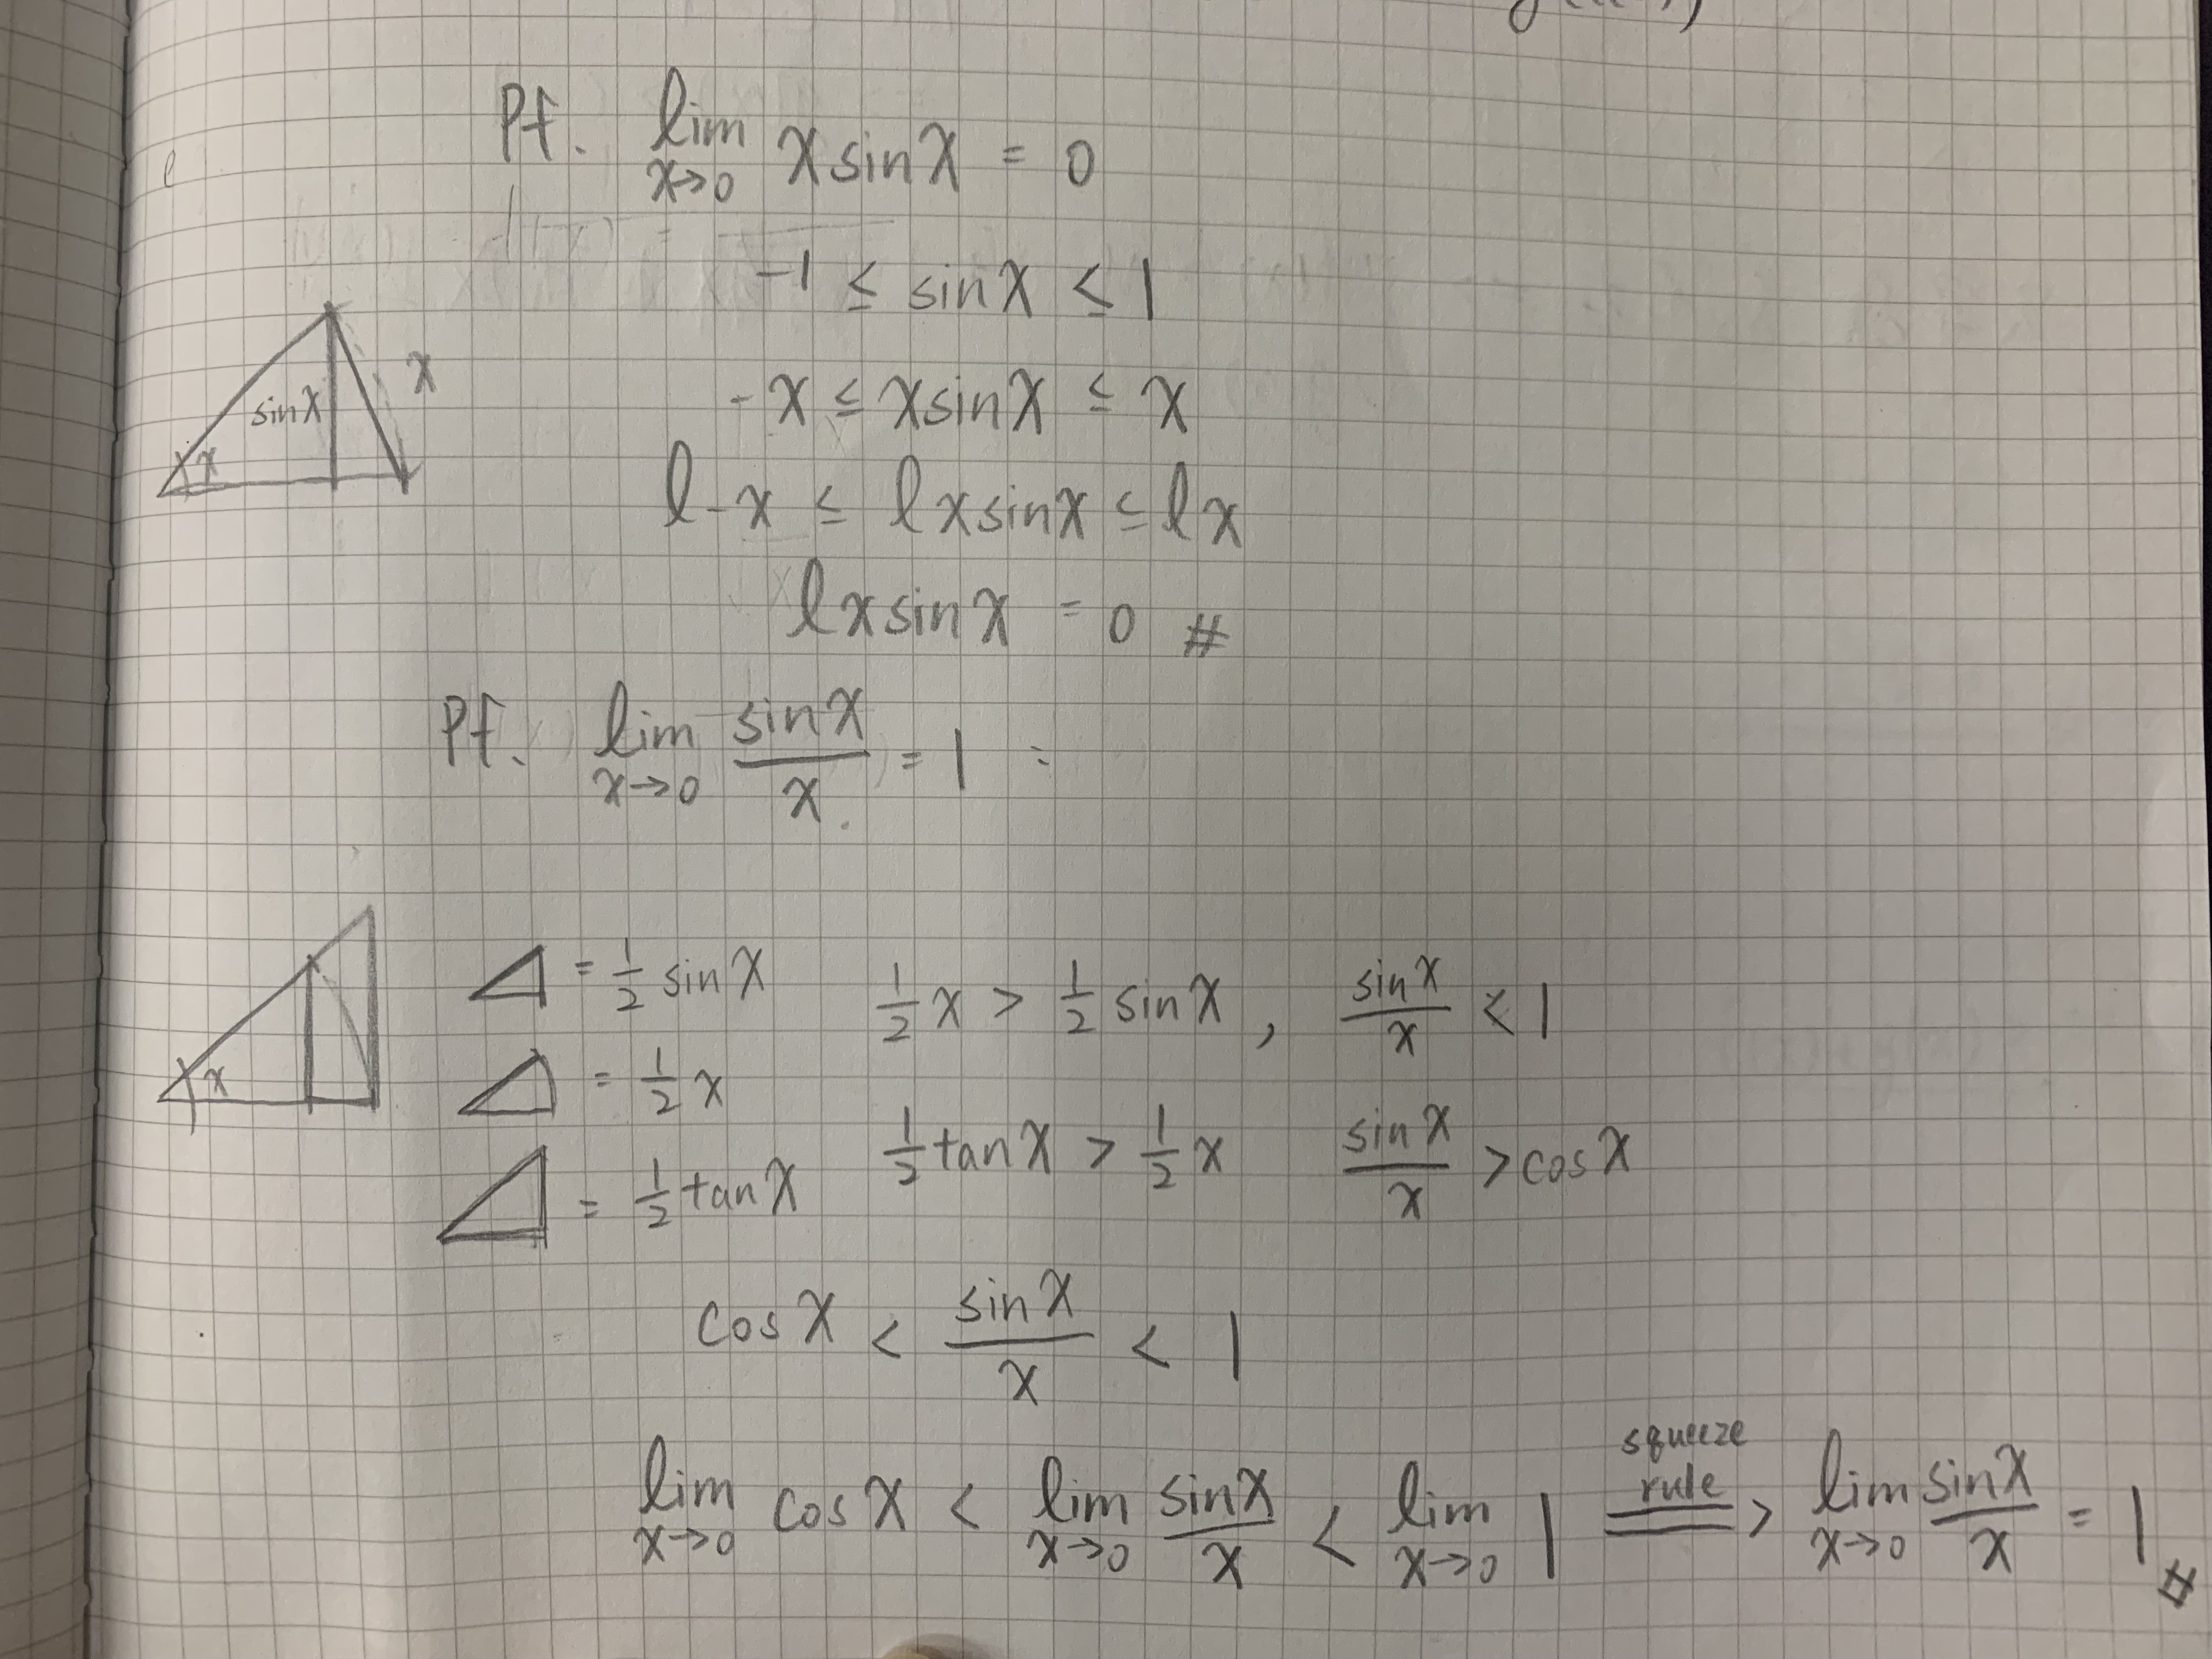 Pf. lim x→0 x sin x = 0
-1 ≤ sin x ≤ 1
-x ≤ x sin x ≤ x
l -x ≤ l x sin x ≤ l x
l x sin x = 0 #
sin x
x
x
Pf. lim x→0 sin x / x = 1
x
= 1/2 sin x
1/2 x > 1/2 sin x , sin x / x < 1
= 1/2 x
= 1/2 tan x
1/2 tan x > 1/2 x sin x / x > cos x
cos x < sin x / x < 1
lim x→0 cos x < lim x→0 sin x / x < lim x→0 1 squeeze rule => lim x→0 sin x / x = 1 #